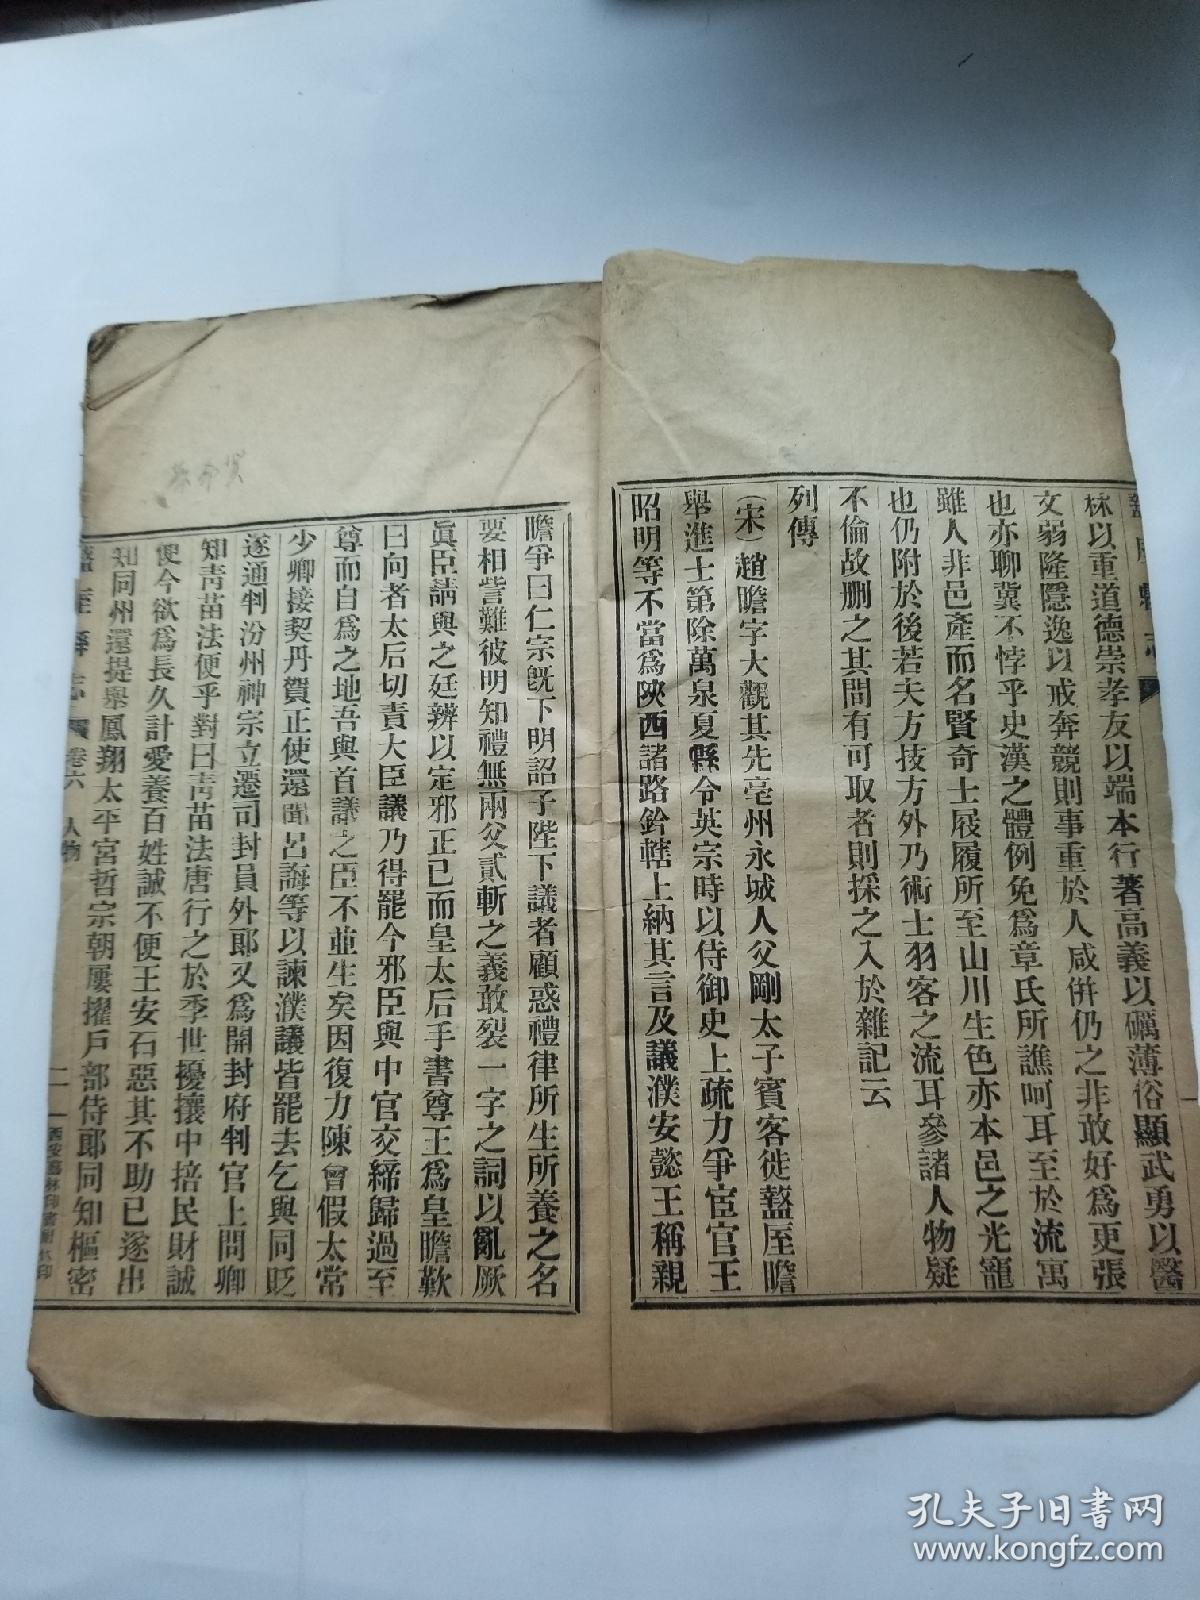 林以重道德崇孝友以端本行著高義以礪薄俗顯武勇以醫
文弱隆隱逸以戒奔競則事重於人咸併仍之非敢好爲更張
也亦聊冀不悖乎史漢之體例免爲章氏所譙呵耳至於流寓
雖人非邑產而名賢奇士屐履所至山川生色亦本邑之光寵
也仍附於後若夫方技方外乃術士羽客之流耳參諸人物疑
不倫故删之其間有可取者則採之入於雜記云
列傳
（宋）趙瞻字大觀其先亳州永城人父剛太子賓客徙盩厔瞻
舉進士第除萬泉夏縣令英宗時以侍御史上疏力爭宦官王
昭明等不當爲陝西諸路鈐轄上納其言及議濮安懿王稱親
瞻爭曰仁宗旣下明詔子陛下議者顧惑禮律所生所養之名
要相訾難彼明知禮無兩父貳斬之義敢裂一字之詞以亂厥
眞臣請與之廷辨以定邪正已而皇太后手書尊王爲皇瞻歎
曰向者太后切責大臣議乃得罷今邪臣與中官交締歸過至
尊而自爲之地吾與首議之臣不並生矣因復力陳曾假太常
少卿接契丹賀正使還聞呂誨等以諫濮議皆罷去乞與同貶
遂通判汾州神宗立遷司封員外郎又爲開封府判官上問卿
知靑苗法便乎對曰靑苗法唐行之於季世擾攘中掊民財誠
便今欲爲長久計愛養百姓誠不便王安石惡其不助已遂出
知同州還提舉鳳翔太平宮哲宗朝屢擢戶部侍郎同知樞密
盩厔縣志
卷六
人物
二
孔夫子旧书网
www.kongfz.com